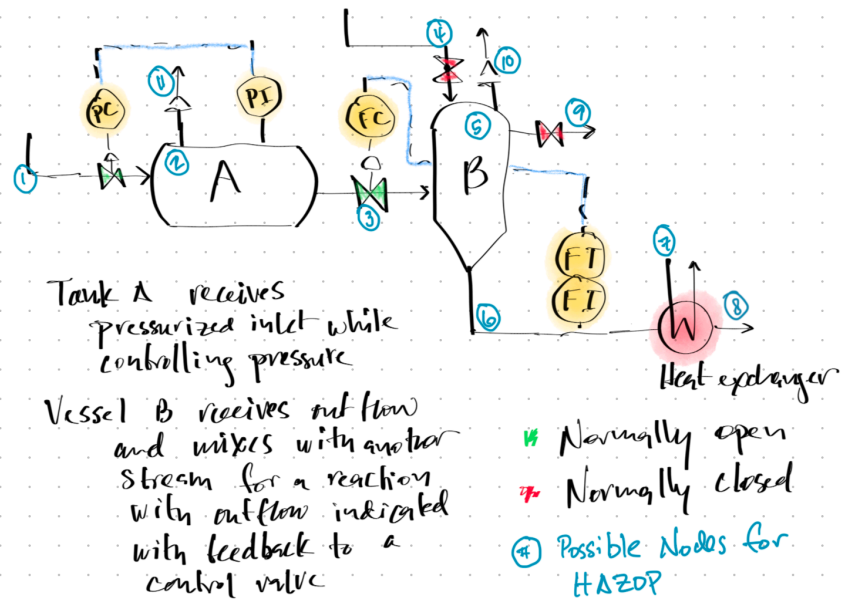 4
10
11
PC
PI
FC
5
9
1
2
A
B
3
FT
FI
7
6
8
Heat exchanger
Tank A receives
pressurized inlet while
controlling pressure
Vessel B receives outflow
and mixes with another
stream for a reaction
with outflow indicated
with feedback to a
control valve
Normally open
Normally closed
# Possible Nodes for
HAZOP